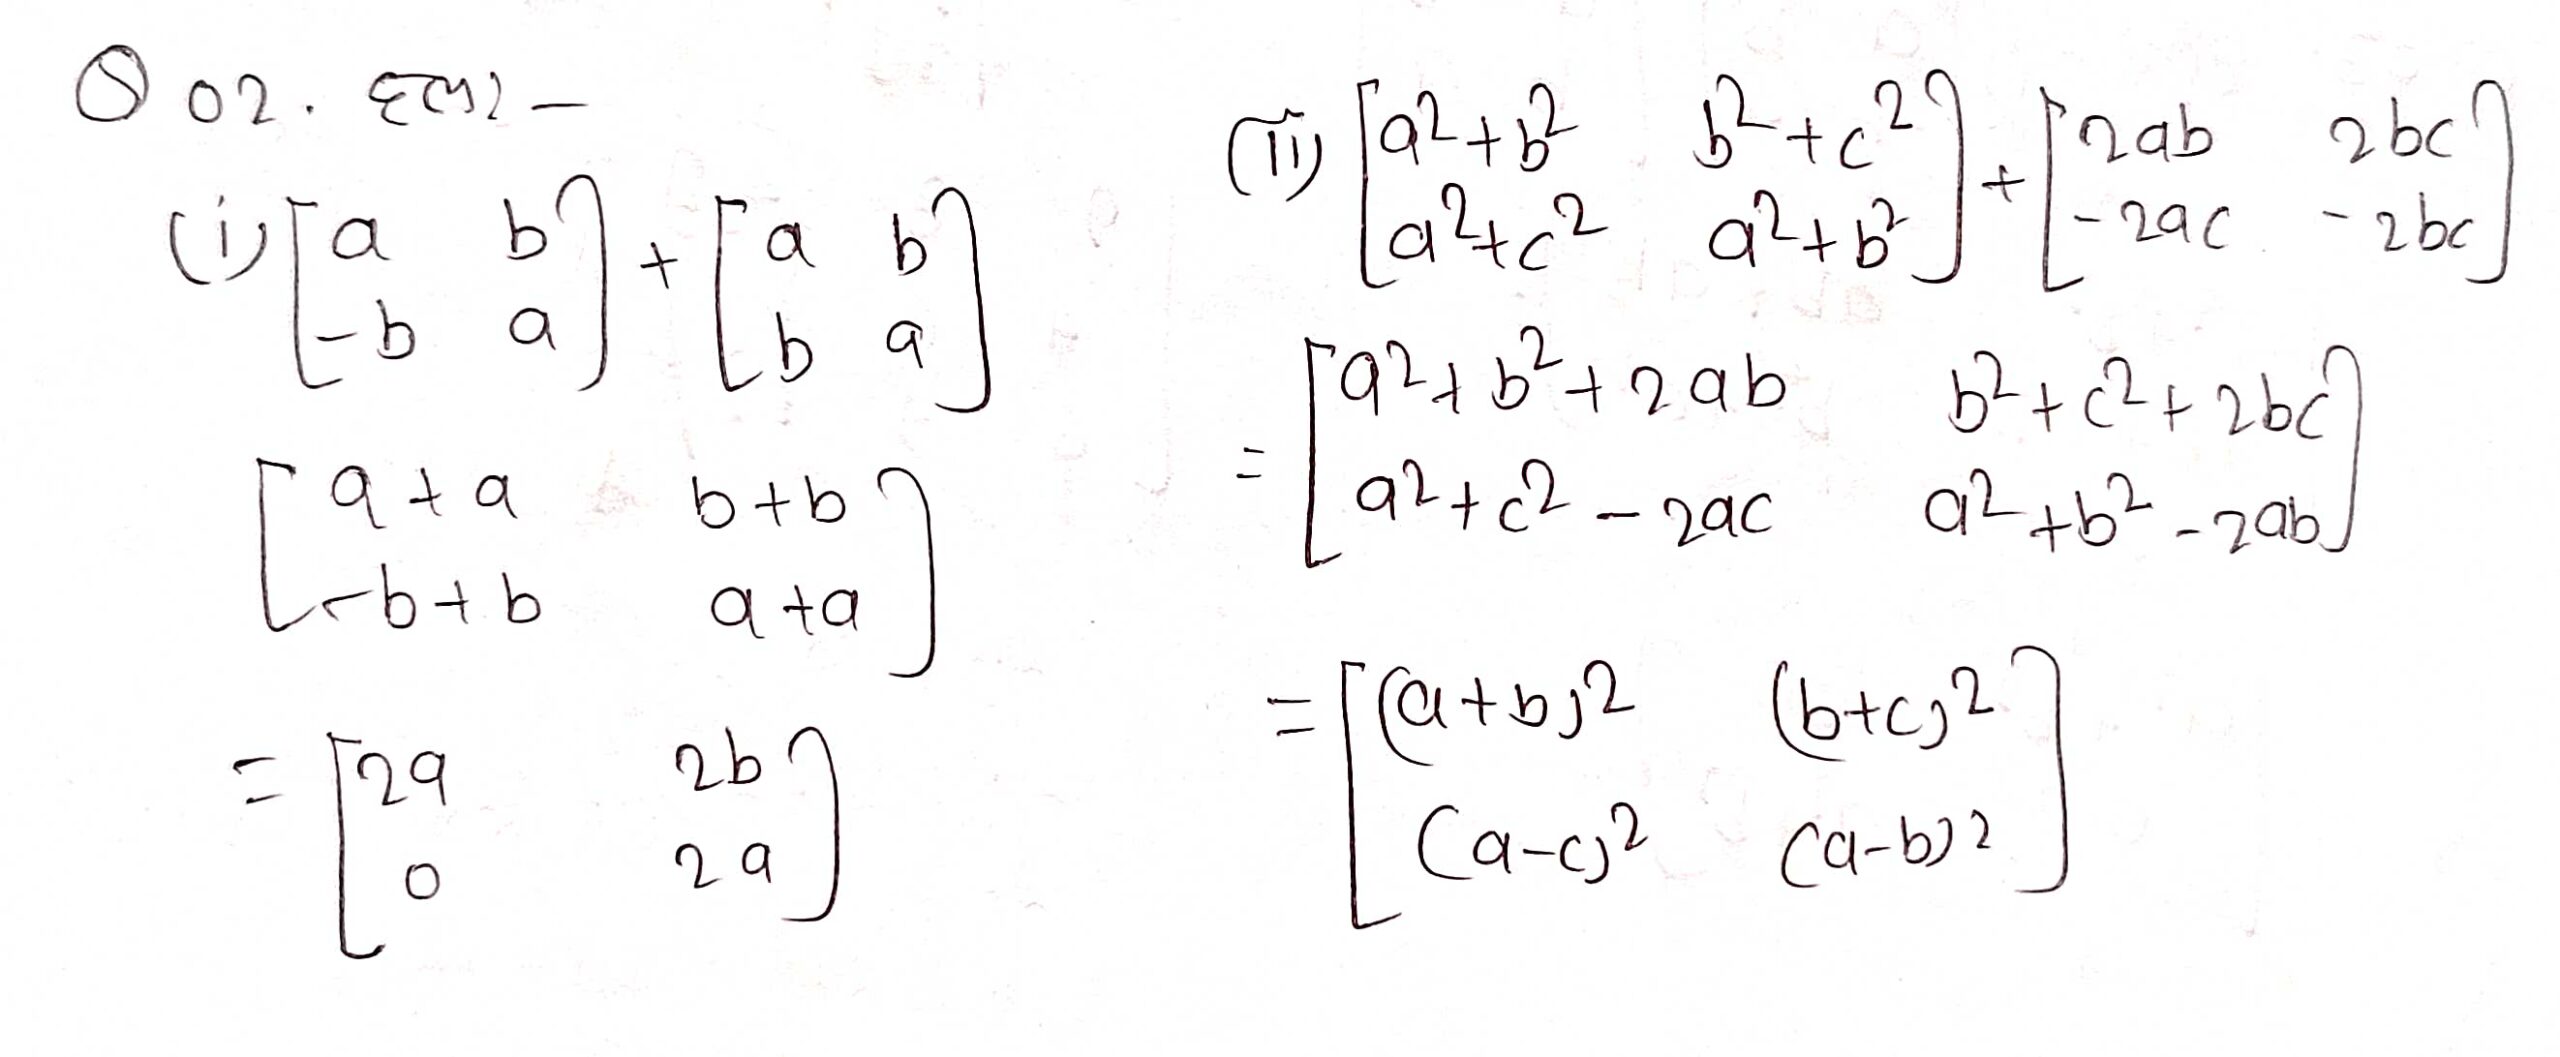 Q 02. हल:-
(i) [a b
-b a] + [a b
b a]
[a+a b+b
-b+b a+a]
= [2a 2b
0 2a]
(ii) [a²+b² b²+c²
a²+c² a²+b²] + [2ab 2bc
-2ac -2bc]
= [a²+b²+2ab b²+c²+2bc
a²+c²-2ac a²+b²-2ab]
= [(a+b)² (b+c)²
(a-c)² (a-b)²]